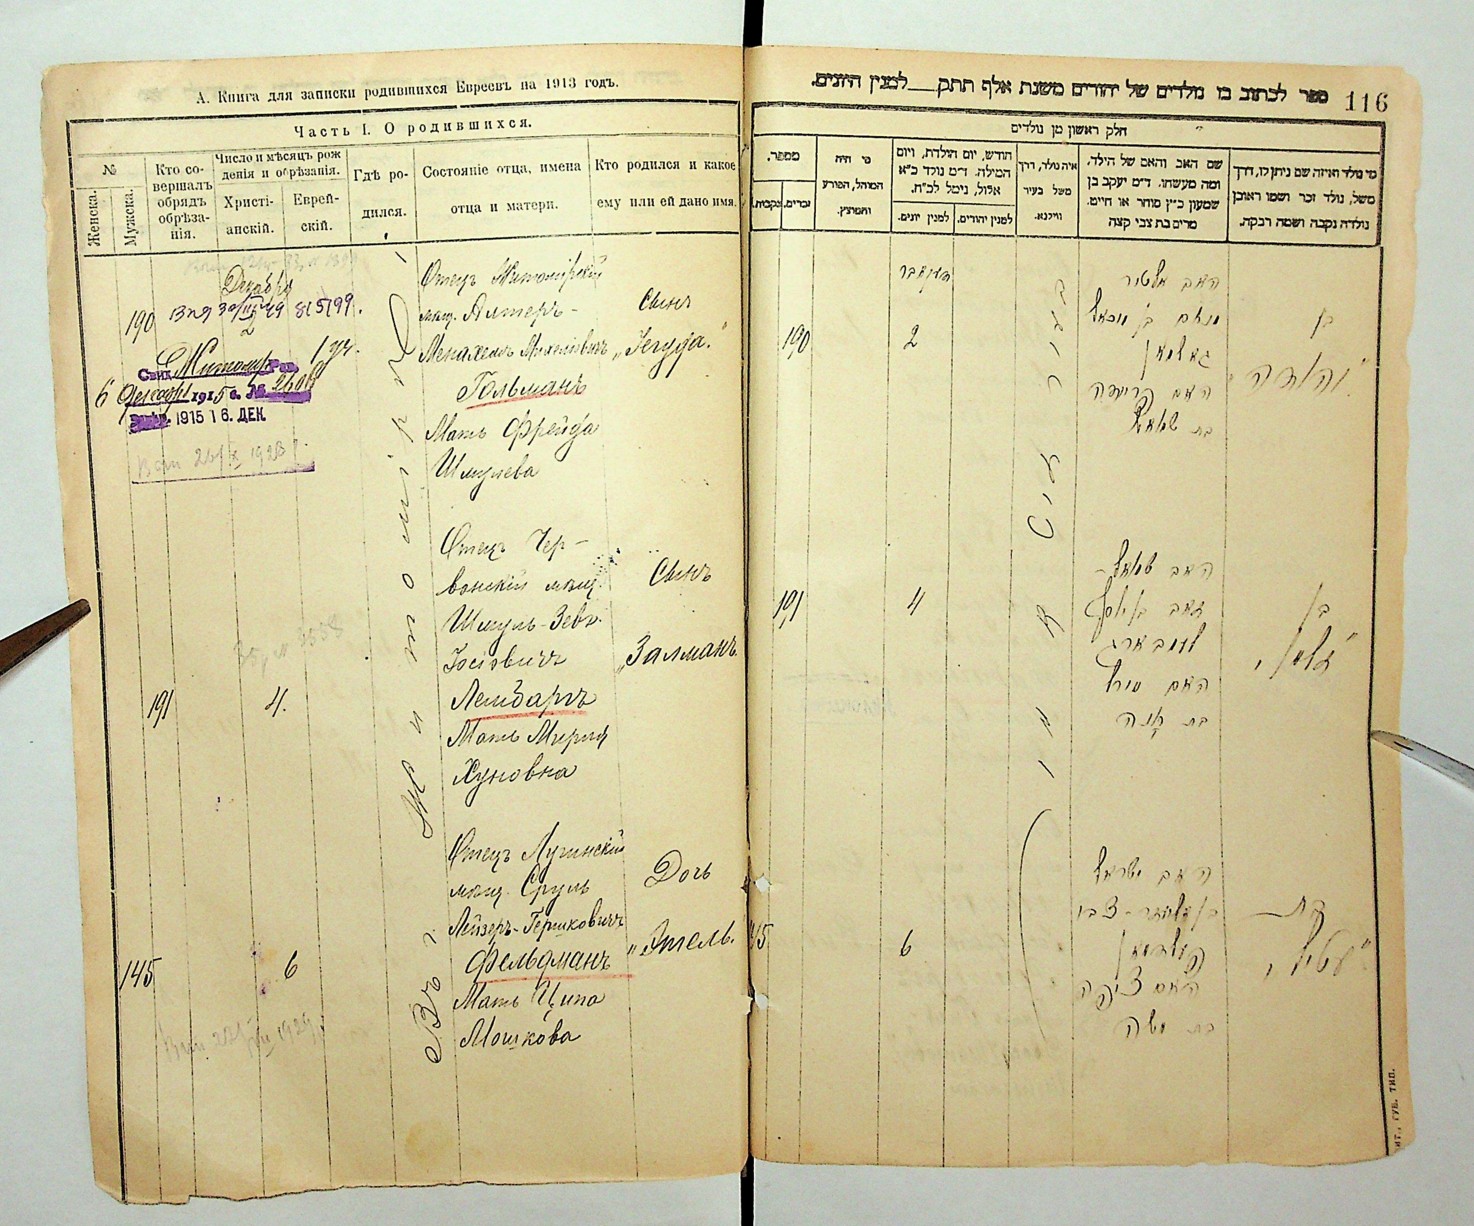 А. Книга для записки родившихся Евреевъ на 1913 годъ.
Часть I. О родившихся.
№
Женска.
Мужска.
Кто со-
вершалъ
обрядъ
обрѣза-
нія.
Число и мѣсяцъ рож
денія и обрѣзанія.
Христі-
анскій.
Еврей-
скій.
Гдѣ ро-
дился.
Состояніе отца, имена
отца и матери.
Кто родился и какое
ему или ей дано имя.
Декабря
190
2
Отецъ Житомірскій
мѣщ. Алтеръ-
Менахемъ Михелевичъ
Гольманъ
Мать Фрейда
Шмулева
Сынъ
„Іегуда“
6 Декабря 1915 г. №
1915 16. ДЕК.
Въ г. Житомірѣ
191
4.
Отецъ Чер-
вонскій мѣщ.
Шмуль-Зевъ
Іосіовичъ
Лембаргъ
Мать Мирля
Хуновна
Сынъ
„Залманъ“
145
6
Отецъ Лугинскій
мѣщ. Сруль
Лейзеръ-Гершковичъ
Фельдманъ
Мать Ципа
Мошкова
Дочь
„Этель“
ספר לכתוב בו נולדים של יהודים משנת אלף תתק___למנין היונים.
116
חלק ראשון מן נולדים
מי נולד ואיזה שם ניתן לו, דרך
משל, נולד זכר ושמו ראובן
נולדה נקבה ושמה רבקה.
שם האב והאם של הילד,
ומה מעשהו. ד״מ יעקב בן
שמעון כ״ץ סוחר או חייט.
מרים בת צבי קצה
איה נולד, דרך
משל בעיר
ווילנא.
חודש, יום הולדת, ויום
המילה. ד״מ נולד כ״א
אלול, ניטל לכ״ח.
למנין יהודים.
למנין יונים.
מי היה
המוהל, הפורע
והמוצץ.
מספר.
זכרים.
נקבות.
דעקאבר
190
2
האב אלטיר
מנחם בן מיכאל
גאלמאן
האם פריידה
בת שמואל
בן
„יהודה“
191
4
האב שמואל
זאב בן יוסף
לעמבארג
האם מירל
בת חנה
בן
„זלמן“
145
6
האב ישראל
בן אליעזר-צבי
פעלדמאן
האם ציפה
בת משה
בת
„עטיל“
ГУБ. ТИП.